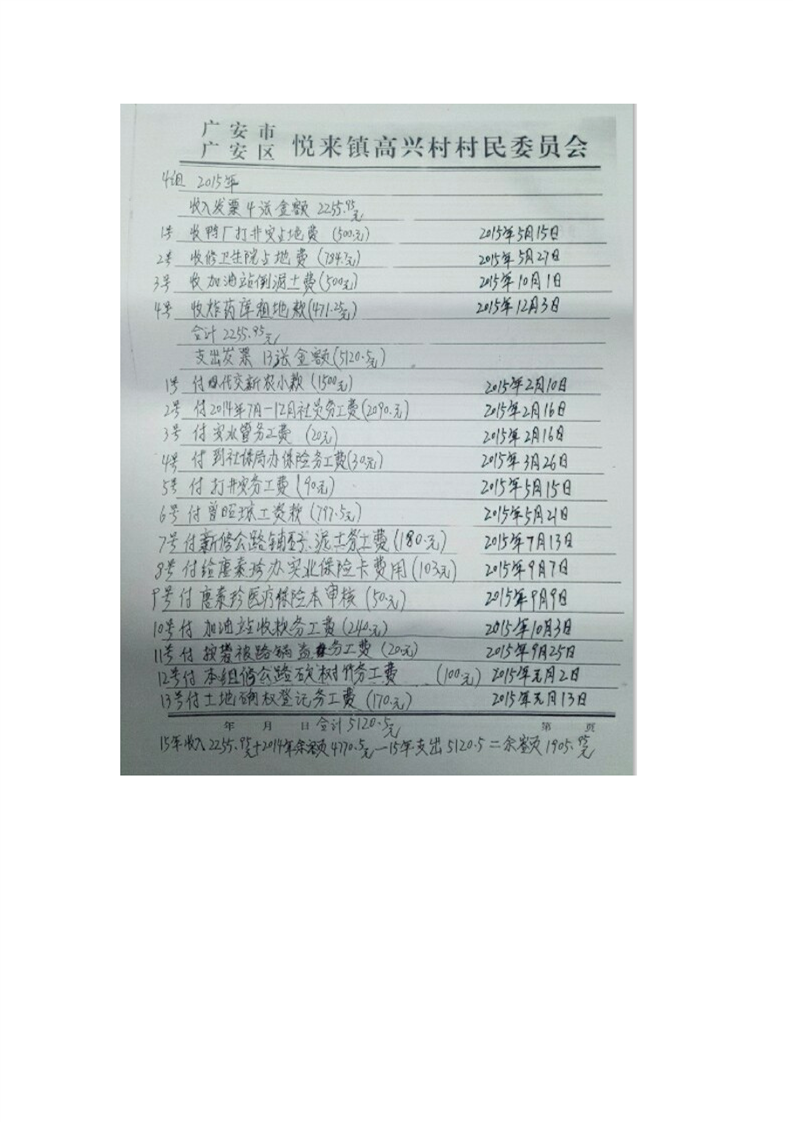 广安市
广安区 悦来镇高兴村村民委员会
4组 2015年
收入发票4张金额2255.95元
1号 收鸭厂打井实占地费(500.元) 2015年5月15日
2号 收修卫生院占地费(784.7元) 2015年5月27日
3号 收加油站倒泥土费(500元) 2015年10月1日
4号 收炸药库租地款(471.25元) 2015年12月3日
合计2255.95元
支出发票13张金额(5120.5元)
1号 付 代交新农小款(1500元) 2015年2月10日
2号 付2014年7月—12月社员务工费(2090.元) 2015年2月16日
3号 付 实水管务工费 (20元) 2015年2月16日
4号 付 到社保局办保险务工费(30元) 2015年3月26日
5号 付 打井实务工费(90元) 2015年5月15日
6号 付曾昭球工资款(797.5元) 2015年5月21日
7号付新修公路铺 泥土务工费(180.元) 2015年7月13日
8号付给唐素珍办实业保险卡费用(103元) 2015年9月7日
9号付唐素珍医疗保险本审核(50元) 2015年9月9日
10号付 加油站收款务工费(240.元) 2015年10月3日
11号付 路 务工费(20元) 2015年9月25日
12号付 本组修公路砍树竹务工费(100元) 2015年元月2日
13号付土地确权登记务工费(170.元) 2015年元月13日
年 月 日 合计5120.5元 第 页
15年收入2255.95元+2014年余额4770.5元—15年支出5120.5=余额1905.95元